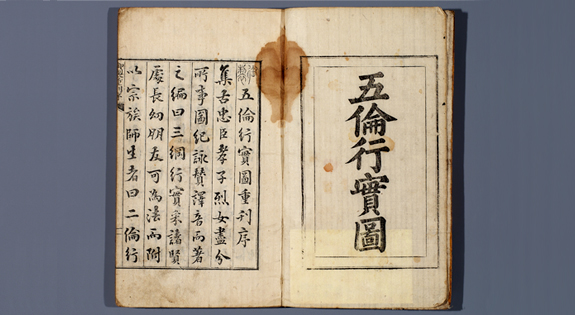 五倫行實圖
五倫行實圖重刊序
集古忠臣孝子烈女盡分
所事圖紀詠贊譯音而著
之編曰三綱行實采諸賢
處長幼朋友可為法而附
以宗族師生者曰二倫行